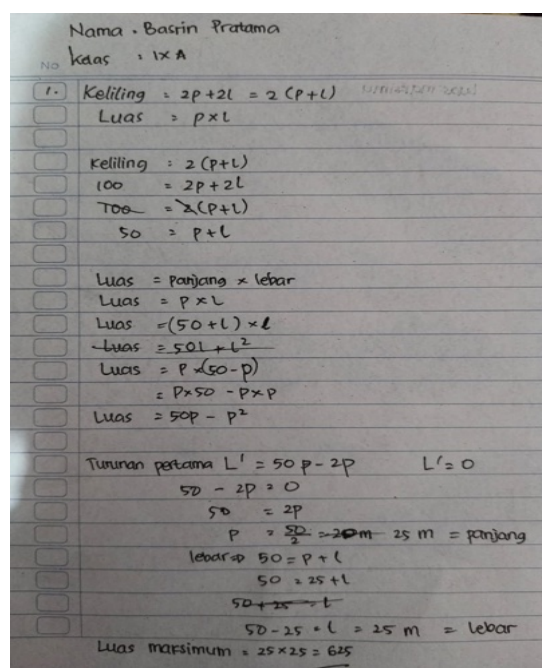 Nama . Basrin Pratama
No Kelas : IX A
1. Keliling = 2p+2l = 2 (p+l)
Luas = p x l
Keliling : 2 (p+l)
100 = 2p + 2l
100 = 2(p+l)
50 = p+l
Luas = panjang x lebar
Luas = p x l
Luas = (50+l) x l
Luas = 50l + l²
Luas = p x (50-p)
= p x 50 - p x p
Luas = 50p - p²
Turunan pertama L' = 50 p - 2p L' = 0
50 - 2p = 0
50 = 2p
p = 50/2 = 20m 25 m = panjang
lebar => 50 = p + l
50 = 25 + l
50 + 25 = l
50 - 25 = l = 25 m = lebar
Luas maksimum = 25 x 25 = 625